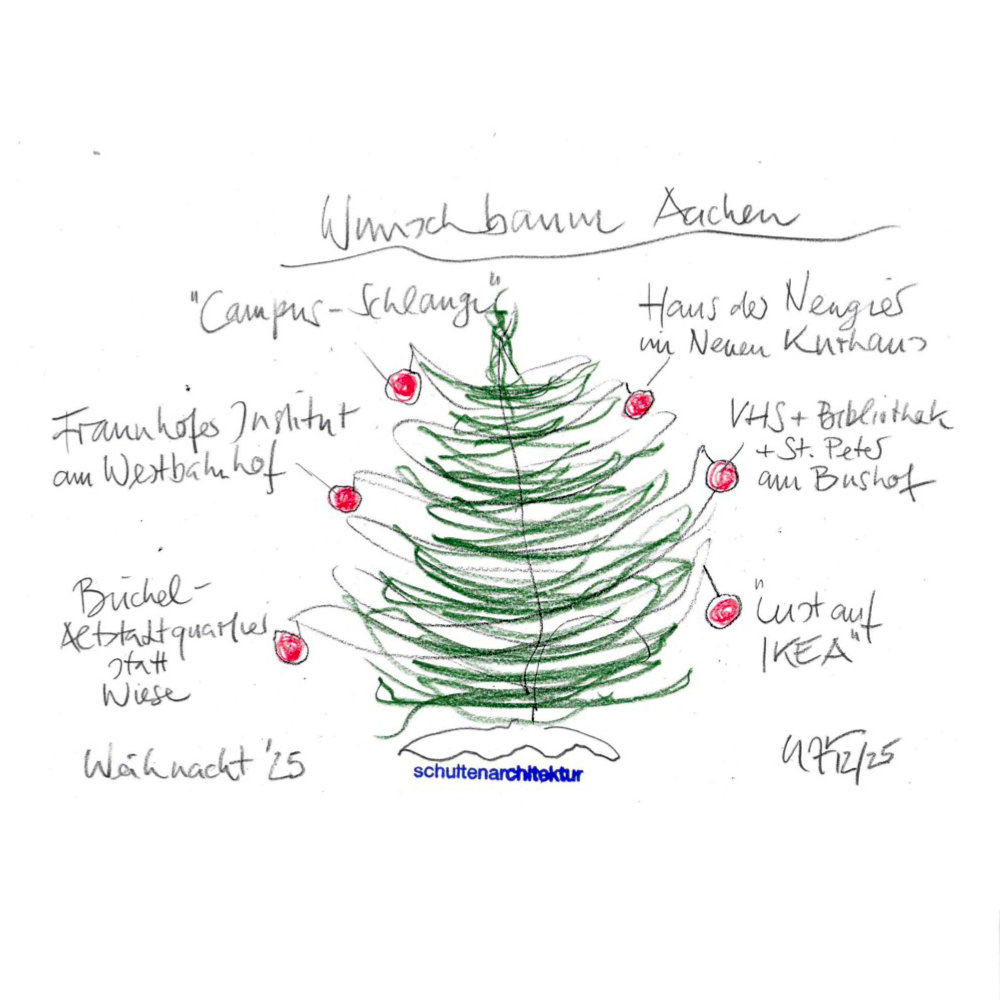 Wunschbaum Aachen
"Campus-Schlange"
Haus der Neugier
im Neuen Kurhaus
Fraunhofer Institut
am Westbahnhof
VHS + Bibliothek
+ St. Peter
am Bushof
Büchel-
Altstadtquartier
statt
Wiese
"Lust auf
IKEA"
Weihnacht '25
12/25
schultenarchitektur